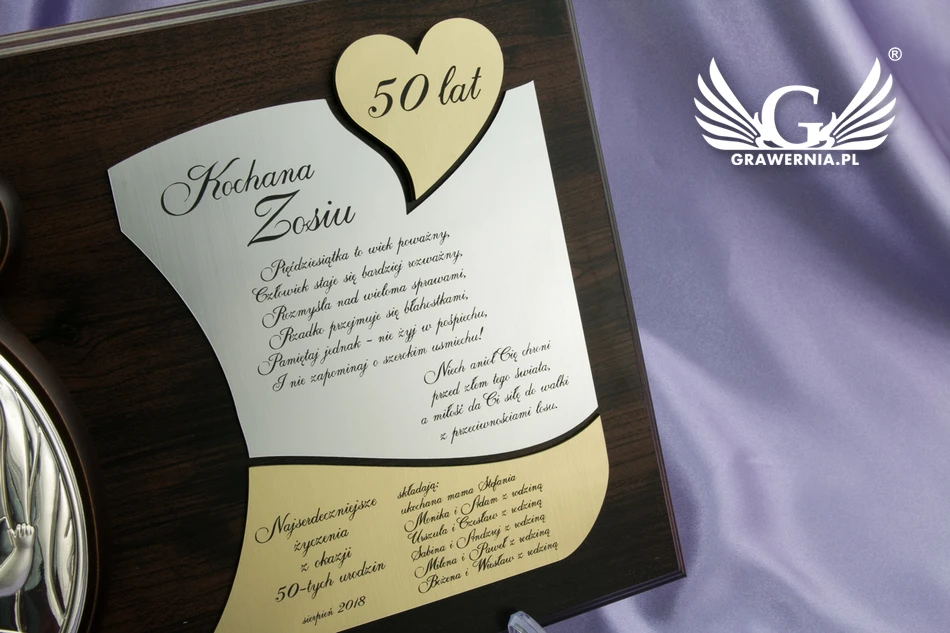 50 lat
Kochana
Zosiu
Pięćdziesiątka to wiek poważny,
Człowiek staje się bardziej rozważny,
Rozmyśla nad wieloma sprawami,
Rzadko przejmuje się błahostkami,
Pamiętaj jednak - nie żyj w pośpiechu,
I nie zapominaj o szerokim uśmiechu!
Niech anioł Cię chroni
przed złem tego świata,
a miłość da Ci siłę do walki
z przeciwnościami losu.
Najserdeczniejsze
życzenia
z okazji
50-tych urodzin
sierpień 2018
składają:
ukochana mama Stefania
Monika i Adam z rodziną
Urszula i Czesław z rodziną
Sabina i Andrzej z rodziną
Milena i Paweł z rodziną
Bożena i Wiesław z rodziną
G
®
GRAWERNIA.PL